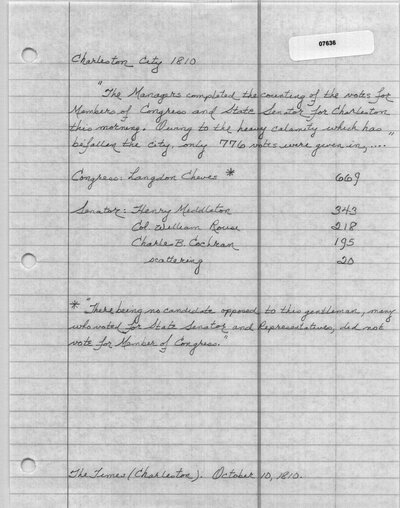 07636
Charleston City 1810
"The Managers completed the counting of the votes for
Members of Congress and State Senator for Charleston
this morning. Owing to the heavy calamity which has
befallen the city, only 776 votes were given in, ...."
Congress: Langdon Cheves * 669
Senator: Henry Meddleton 343
Col William Rouse 218
Charle B. Cochran 195
scattering 20
* "There being no candidate opposed to this gentleman, many
who voted for State Senator and Representatives, did not
vote for Member of Congress."
The Times (Charleston). October 10, 1810.